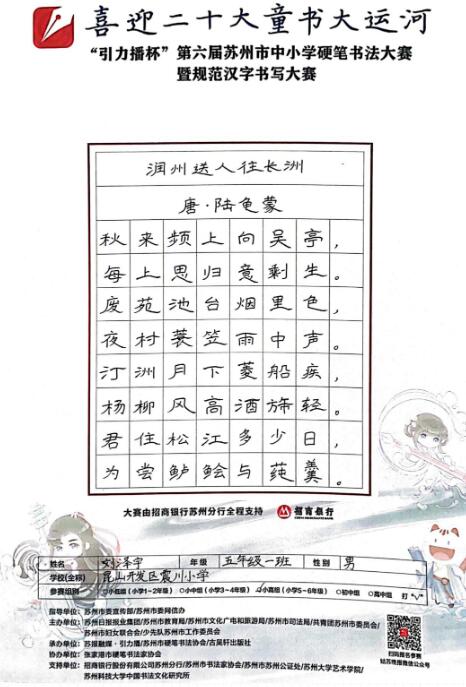 喜迎二十大童书大运河
“引力播杯”第六届苏州市中小学硬笔书法大赛
暨规范汉字书写大赛
润州送人往长洲
唐·陆龟蒙
秋来频上向吴亭，
每上思归意剩生。
废苑池台烟里色，
夜村蓑笠雨中声。
汀洲月下菱船疾，
杨柳风高酒旆轻。
君住松江多少日，
为尝鲈鲙与莼羹。
大赛由招商银行苏州分行全程支持 招商银行
姓名 刘泽宇 年级 五年级一班 性别 男
学校(全称) 昆山开发区震川小学
参赛组别 ○小低组(小学1~2年级) ○小中组(小学3~4年级) ✓小高组(小学5~6年级) ○初中组 ○高中组 打“✓”
指导单位：苏州市委宣传部/苏州市委网信办
主办单位：苏州日报报业集团/苏州市教育局/苏州市文化广电和旅游局/苏州市司法局/共青团苏州市委员会/
苏州市妇女联合会/少先队苏州市工作委员会
承办单位：苏报融媒·引力播/苏州市硬笔书法家协会/古吴轩出版社
协办单位：张家港市硬笔书法家协会
支持单位：招商银行股份有限公司苏州分行/苏州市书法家协会/苏州市苏州公证处/苏州大学艺术学院/
苏州科技大学中国书法文化研究所
扫码报名参赛
姑苏晚报微信公众号